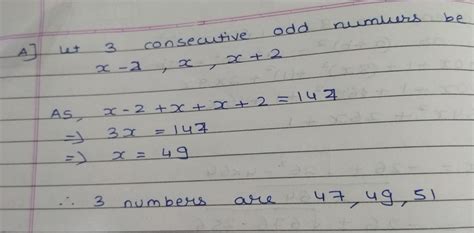 A] let 3 consecutive odd numbers be
x-2, x, x+2
As, x-2+x+x+2=147
⇒ 3x = 147
⇒ x = 49
∴ 3 numbers are 47, 49, 51